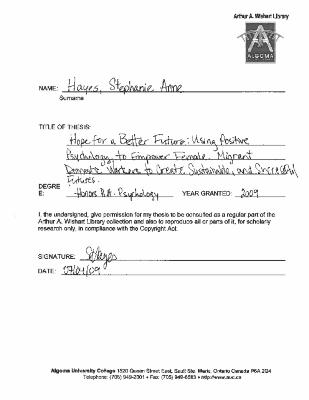 Arthur A. Wishart Library
ALGOMA
NAME: Hayes, Stephanie Anne
Surname
TITLE OF THESIS:
Hope for a Better Future: Using Positive
Psychology to Empower Female Migrant
Domestic Workers to Create Sustainable, and Successful
Futures.
DEGRE
E: Honors B.A. Psychology YEAR GRANTED: 2009
I, the undersigned, give permission for my thesis to be consulted as a regular part of the
Arthur A. Wishart Library collection and also to reproduce all or parts of it, for scholarly
research only, in compliance with the Copyright Act.
SIGNATURE: SHayes
DATE: /09
Algoma University College 1520 Queen Street East, Sault Ste. Marie, Ontario Canada P6A 2G4
Telephone: (705) 949-2301 • Fax: (705) 949-6583 • http://www.auc.ca